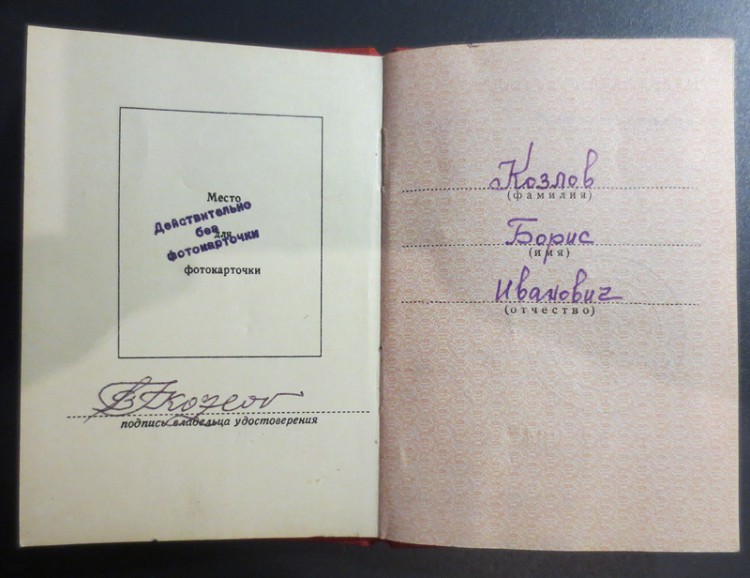 Место
для
фотокарточки
Действительно
без
фотокарточки
подпись владельца удостоверения
Козлов
(фамилия)
Борис
(имя)
Иванович
(отчество)